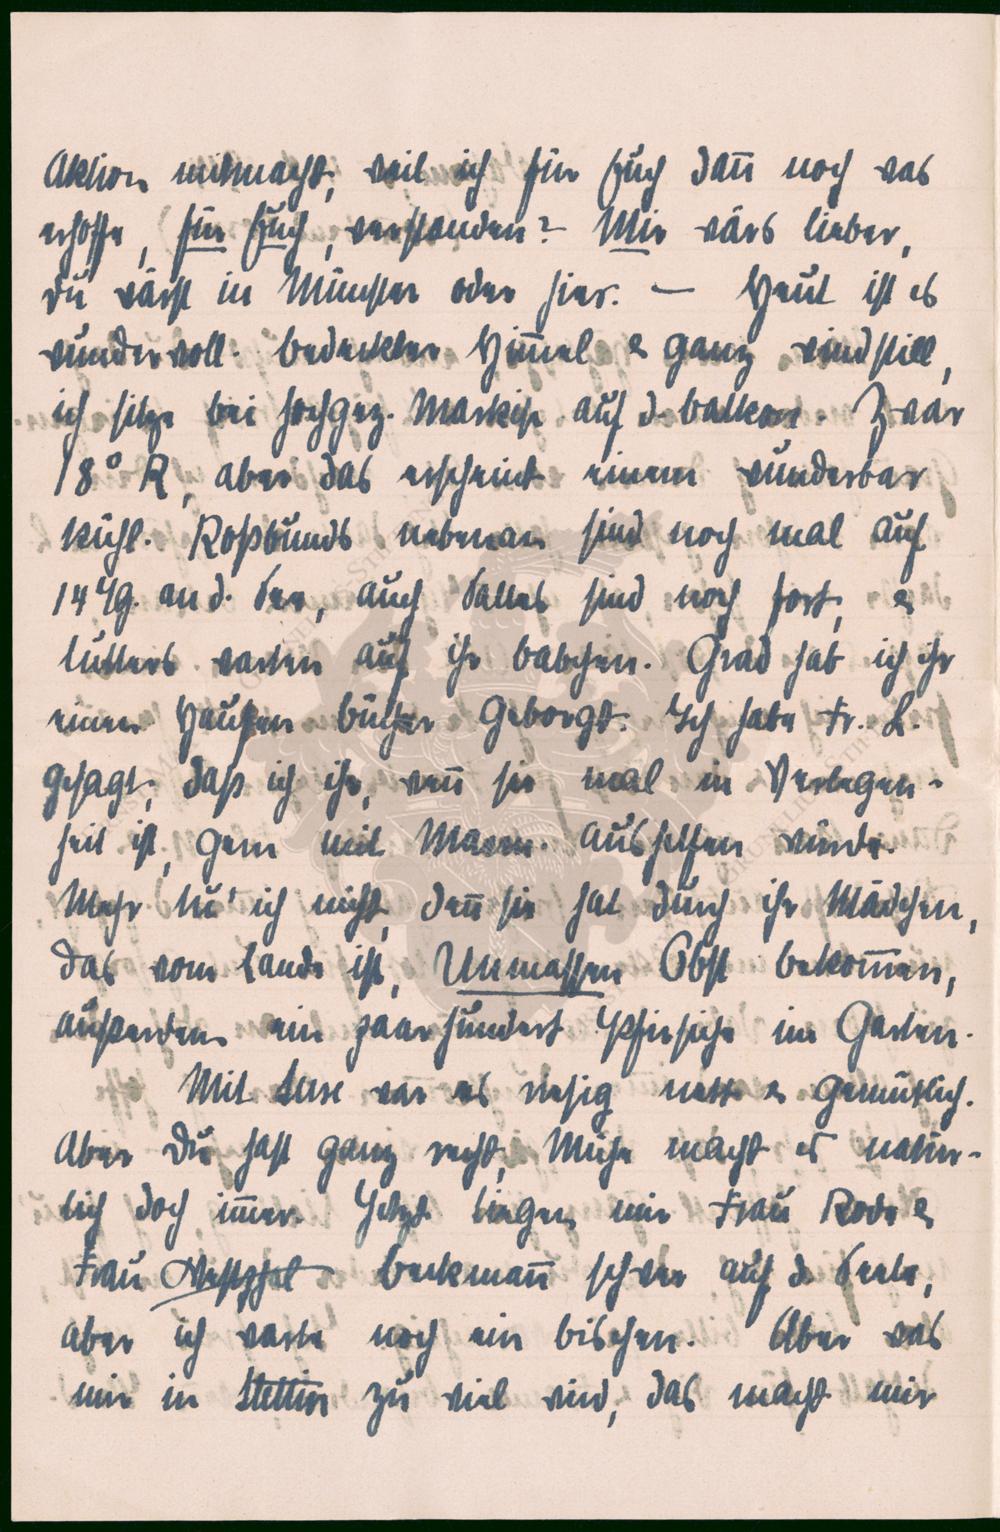 Aktion mitmacht, weil ich für Euch dañ noch was
erhoffe, für Euch, verstanden? Mir wärs lieber,
du wärst in Münster oder hier. — Heut ist es
wundervoll. bedeckter Him̃el & ganz windstill,
ich sitze bei hochgez. Markise auf d. balkon. Zwar
18° R, aber das erscheint einem wunderbar
kühl. Roßbunds nebenan sind noch mal auf
14 Tg. an d. See, auch Salles sind noch fort, &
Lutters warten auf ihr babchen. Grad hab ich ihr
einen Haufen bücher geborgt. Ich habe Fr. L.
gesagt, daß ich ihr, weñ sie mal in Verlegen-
heit ist, gern mit Marm. aushelfen würde.
Mehr tu' ich nicht, deñ sie hat durch ihr Mädchen,
das vom Lande ist, Unmassen Obst bekom̃en,
außerdem ein paarhundert Pfirsiche im Garten.
Mit Luse war es riesig nett & gemütlich.
Aber Du hast ganz recht, Mühe macht es natür-
lich doch im̃er. Jetzt liegen mir Frau Rode &
Frau Westphal beckmañ schwer auf d. Seele,
aber ich warte noch ein bischen. Aber was
mir in Stettin zu viel wird, das macht mir